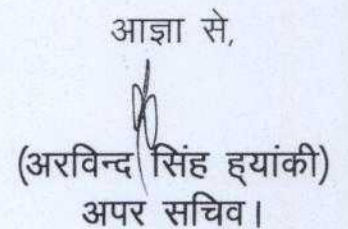 आज्ञा से,
(अरविन्द सिंह ह्यांकी)
अपर सचिव।